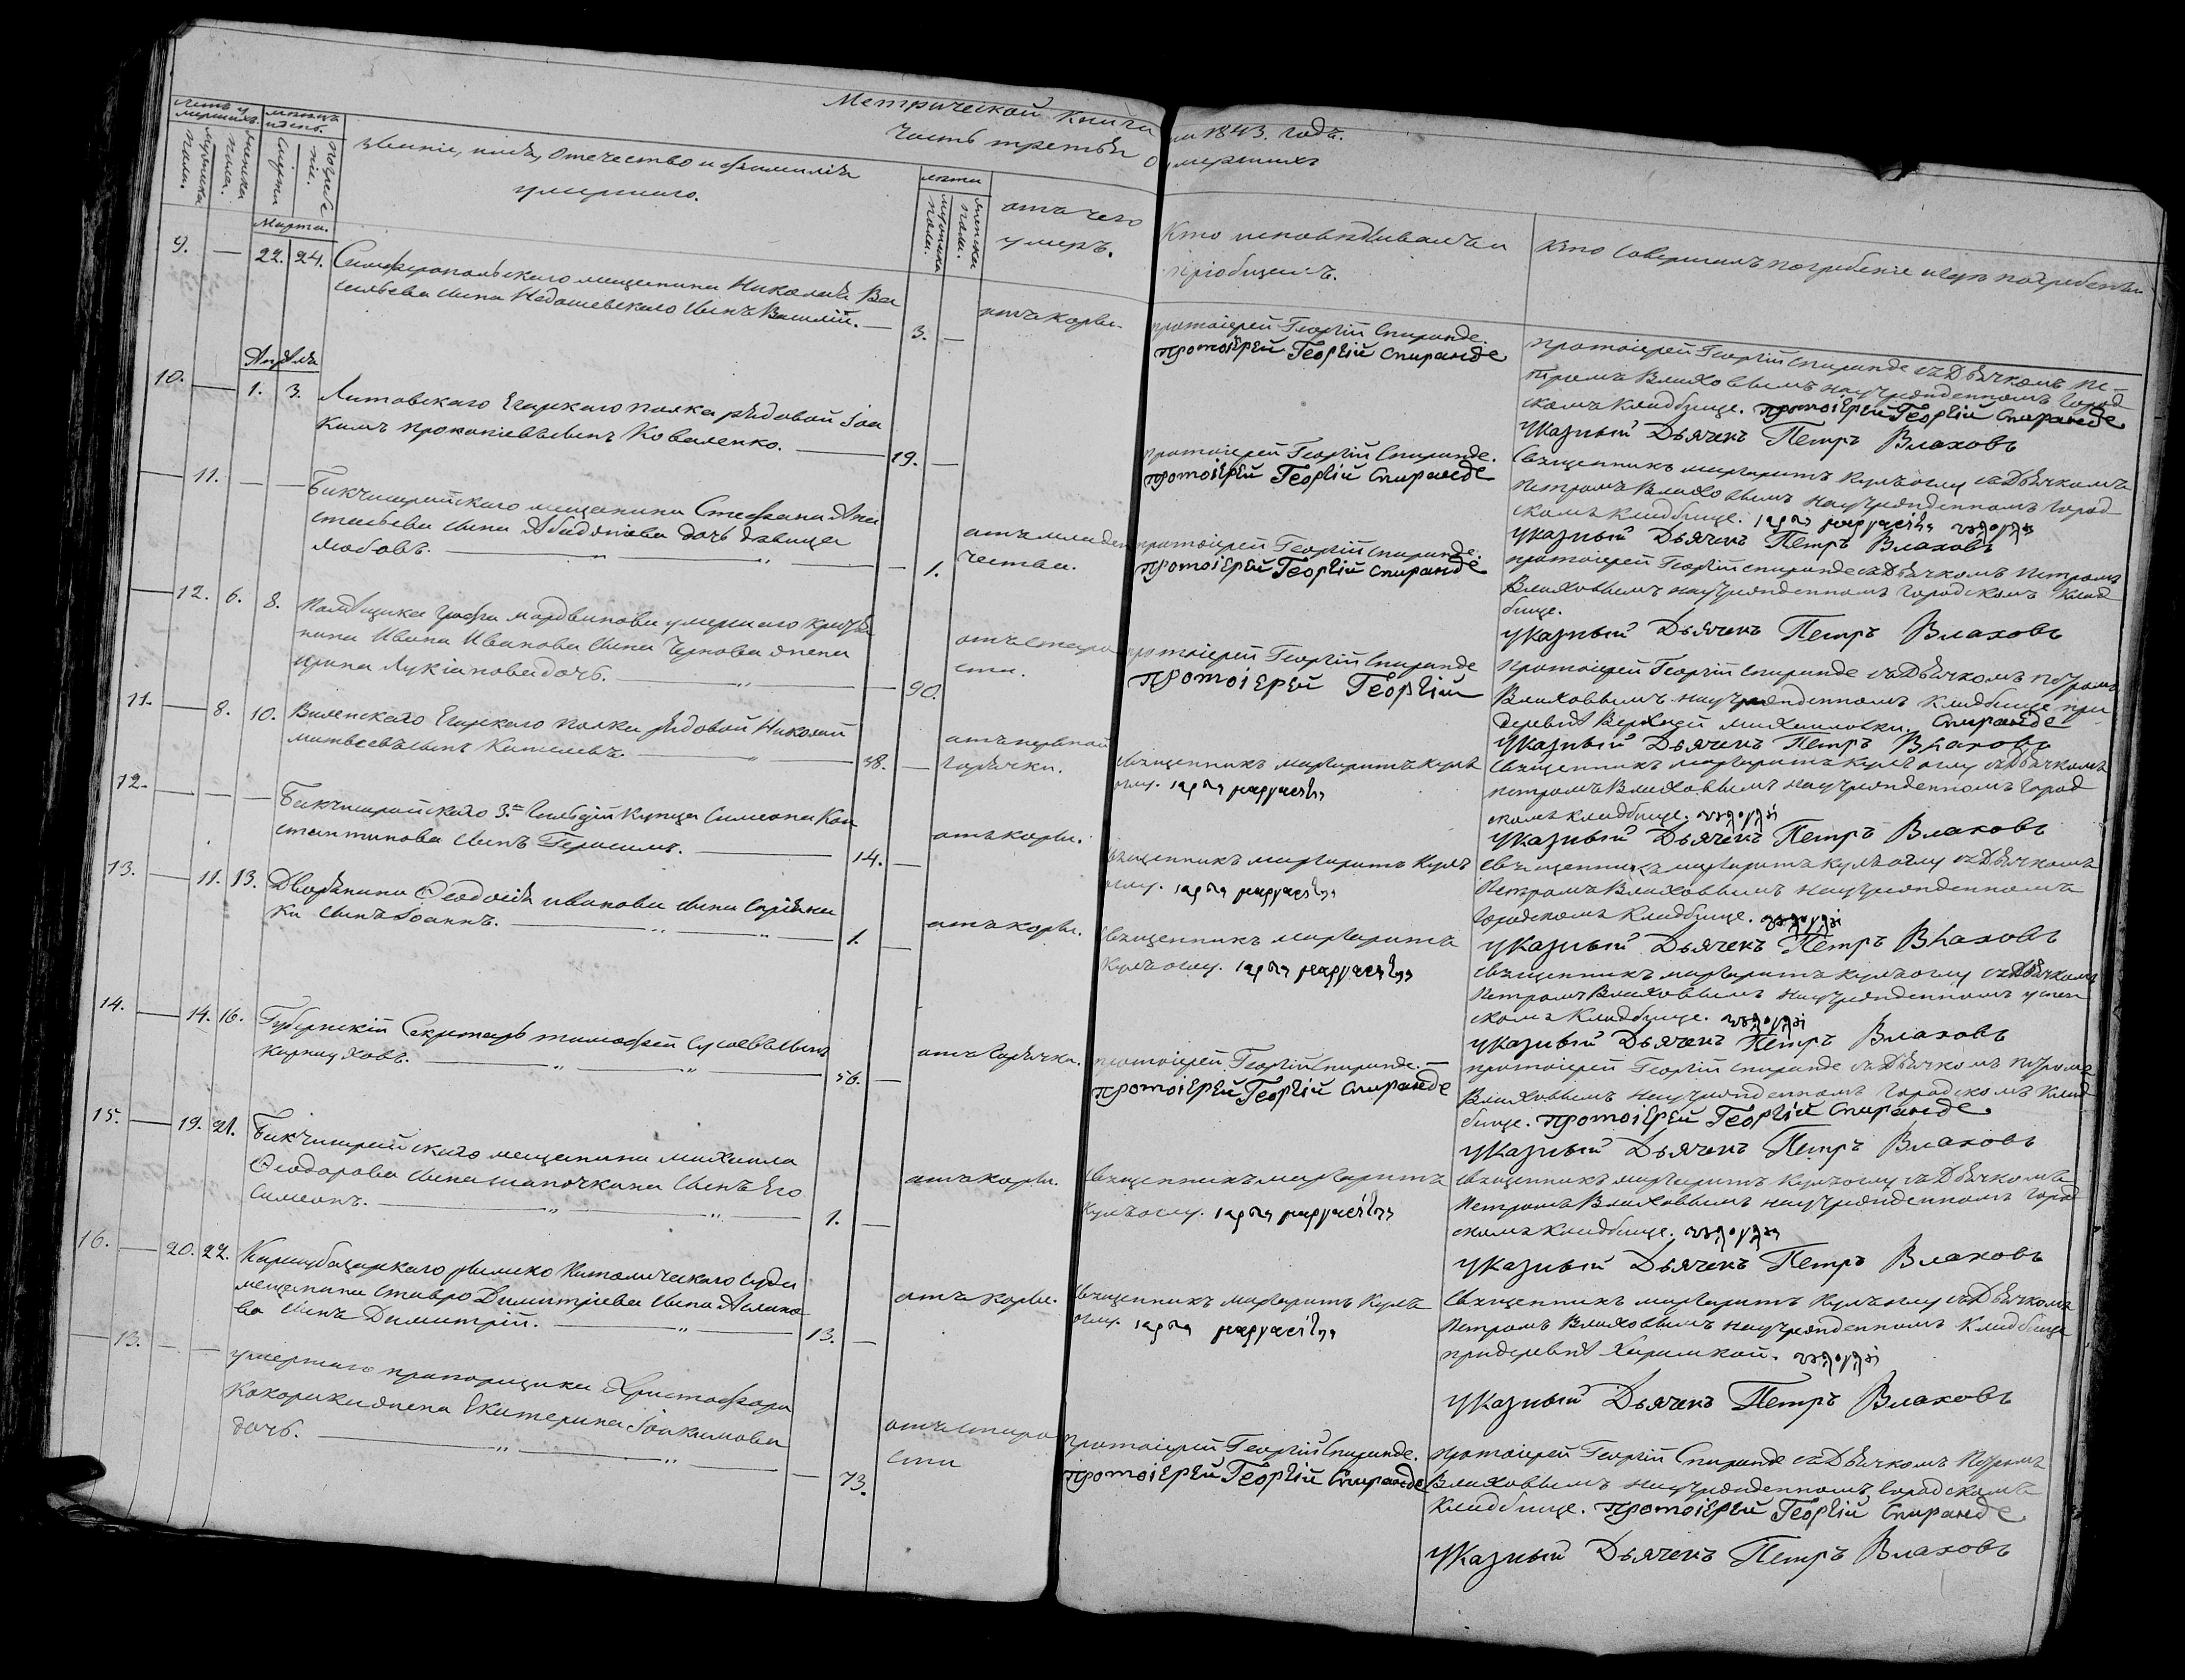 Метрической Книги на 1843. годъ.
Часть третья О умершихъ
Счетъ умершихъ.
Мужеска пола.
Женска пола.
мѣсяцъ и день.
Смерти
погребенія.
Званіе, имя, отечество и фамилія
умершаго.
лѣта
мужеска пола.
женска пола.
отъ чего
умеръ.
Кто исповѣдывалъ и
пріобщалъ.
Кто совершалъ погребеніе и гдѣ погребены
Марта.
9. — 22. 24. Симферопольскаго мещанина Николая Ва
сильева сына Недошевскаго сынъ Василій. — 3. —
отъ кори.
протоіерей Георгій Спиранде.
протоіерей Георгій Спиранде
протоіерей Георгій Спиранде съ Дьячкомъ Пе-
тромъ Влаховымъ на учрежденномъ город
скомъ кладбище. протоіерей Георгій Спиранде
Указный Дьячекъ Петръ Влаховъ
Апрѣль
10. — 1. 3. Литовскаго Егерскаго полка рядовой Іоа
кимъ Прокопіевъ сынъ Коваленко. — 19. —
протоіерей Георгій Спиранде.
протоіерей Георгій Спиранде
Священникъ Маргаритъ Кулъоглу съ Дьячкомъ
Петромъ Влаховымъ на учрежденномъ город
скомъ кладбище.
Указный Дьячекъ Петръ Влаховъ
— 11. — — Бахчисарайскаго мещанина Стефана Ана
стасьева сына дочь девица
Любовь. — „ — „ — 1.
отъ младен
чества.
протоіерей Георгій Спиранде.
протоіерей Георгій Спиранде
протоіерей Георгій Спиранде съ Дьячкомъ Петромъ
Влаховымъ на учрежденномъ городскомъ клад
бище.
Указный Дьячекъ Петръ Влаховъ
— 12. 6. 8. Помѣщика графа Мордвинова умершаго крестья
нина Ивана Иванова сына Чернова жена
Ирина Лукіянова дочь. — „ — 90.
отъ старо
сти.
протоіерей Георгій Спиранде
протоіерей Георгій
протоіерей Георгій Спиранде съ Дьячкомъ Петромъ
Влаховымъ на учрежденномъ кладбище при
деревнѣ Верхней Михаиловки. Спиранде
Указный Дьячекъ Петръ Влаховъ
11. — 8. 10. Виленскаго Егерскаго полка рядовой Николай
Матвеевъ сынъ Киселевъ. — „ — 38. —
отъ нервной
горячки.
Священникъ Маргаритъ Кулъ
оглу.
Священникъ Маргаритъ Кулъоглу съ Дьячкомъ
Петромъ Влаховымъ на учрежденномъ город
скомъ кладбище.
Указный Дьячекъ Петръ Влаховъ
12. — — — Бахчисарайскаго 3.й гильдіи купца Симеона Кон
стантинова сынъ Герасимъ. — 14. —
отъ кори.
Священникъ Маргаритъ Кулъ
оглу.
Священникъ Маргаритъ Кулъоглу съ Дьячкомъ
Петромъ Влаховымъ на учрежденномъ
городскомъ кладбище.
Указный Дьячекъ Петръ Влаховъ
13. — 11. 13. Дворянина Ѳеодосія Иванова сына
сынъ Іоаннъ. — „ — „ — 1. —
отъ кори.
Священникъ Маргаритъ
Кулъоглу.
Священникъ Маргаритъ Кулъоглу съ Дьячкомъ
Петромъ Влаховымъ на учрежденномъ
скомъ кладбище.
Указный Дьячекъ Петръ Влаховъ
14. — 14. 16. Губернскій Секретарь Тимофей сынъ
— „ — „ — 56. —
отъ горячки.
протоіерей Георгій Спиранде. —
протоіерей Георгій Спиранде
протоіерей Георгій Спиранде съ Дьячкомъ Петромъ
Влаховымъ на учрежденномъ городскомъ клад
бище. протоіерей Георгій Спиранде.
Указный Дьячекъ Петръ Влаховъ
15. — 19. 21. Бахчисарайскаго мещанина Михаила
Ѳеодорова сына Шапочкина сынъ Его
Симеонъ. — „ — „ — 1. —
отъ кори.
Священникъ Маргаритъ
Кулъоглу.
Священникъ Маргаритъ Кулъоглу съ Дьячкомъ
Петромъ Влаховымъ на учрежденномъ город
скомъ кладбище.
Указный Дьячекъ Петръ Влаховъ
16. — 20. 22. Карасубазарскаго Римско Католическаго суда
мещанина Ставро Димитріева сына
сынъ Димитрій. — „ — 13. —
отъ кори.
Священникъ Маргаритъ Кулъ
оглу.
Священникъ Маргаритъ Кулъоглу съ Дьячкомъ
Петромъ Влаховымъ на учрежденномъ кладбище
при деревнѣ
Указный Дьячекъ Петръ Влаховъ
— 13. — — умершаго прапорщика Христофора
жена Екатерина Іоакимова
дочь. — „ — „ — 73.
отъ старо
сти
протоіерей Георгій Спиранде.
протоіерей Георгій Спиранде
протоіерей Георгій Спиранде съ Дьячкомъ Петромъ
Влаховымъ на учрежденномъ городскомъ
кладбище. протоіерей Георгій Спиранде
Указный Дьячекъ Петръ Влаховъ